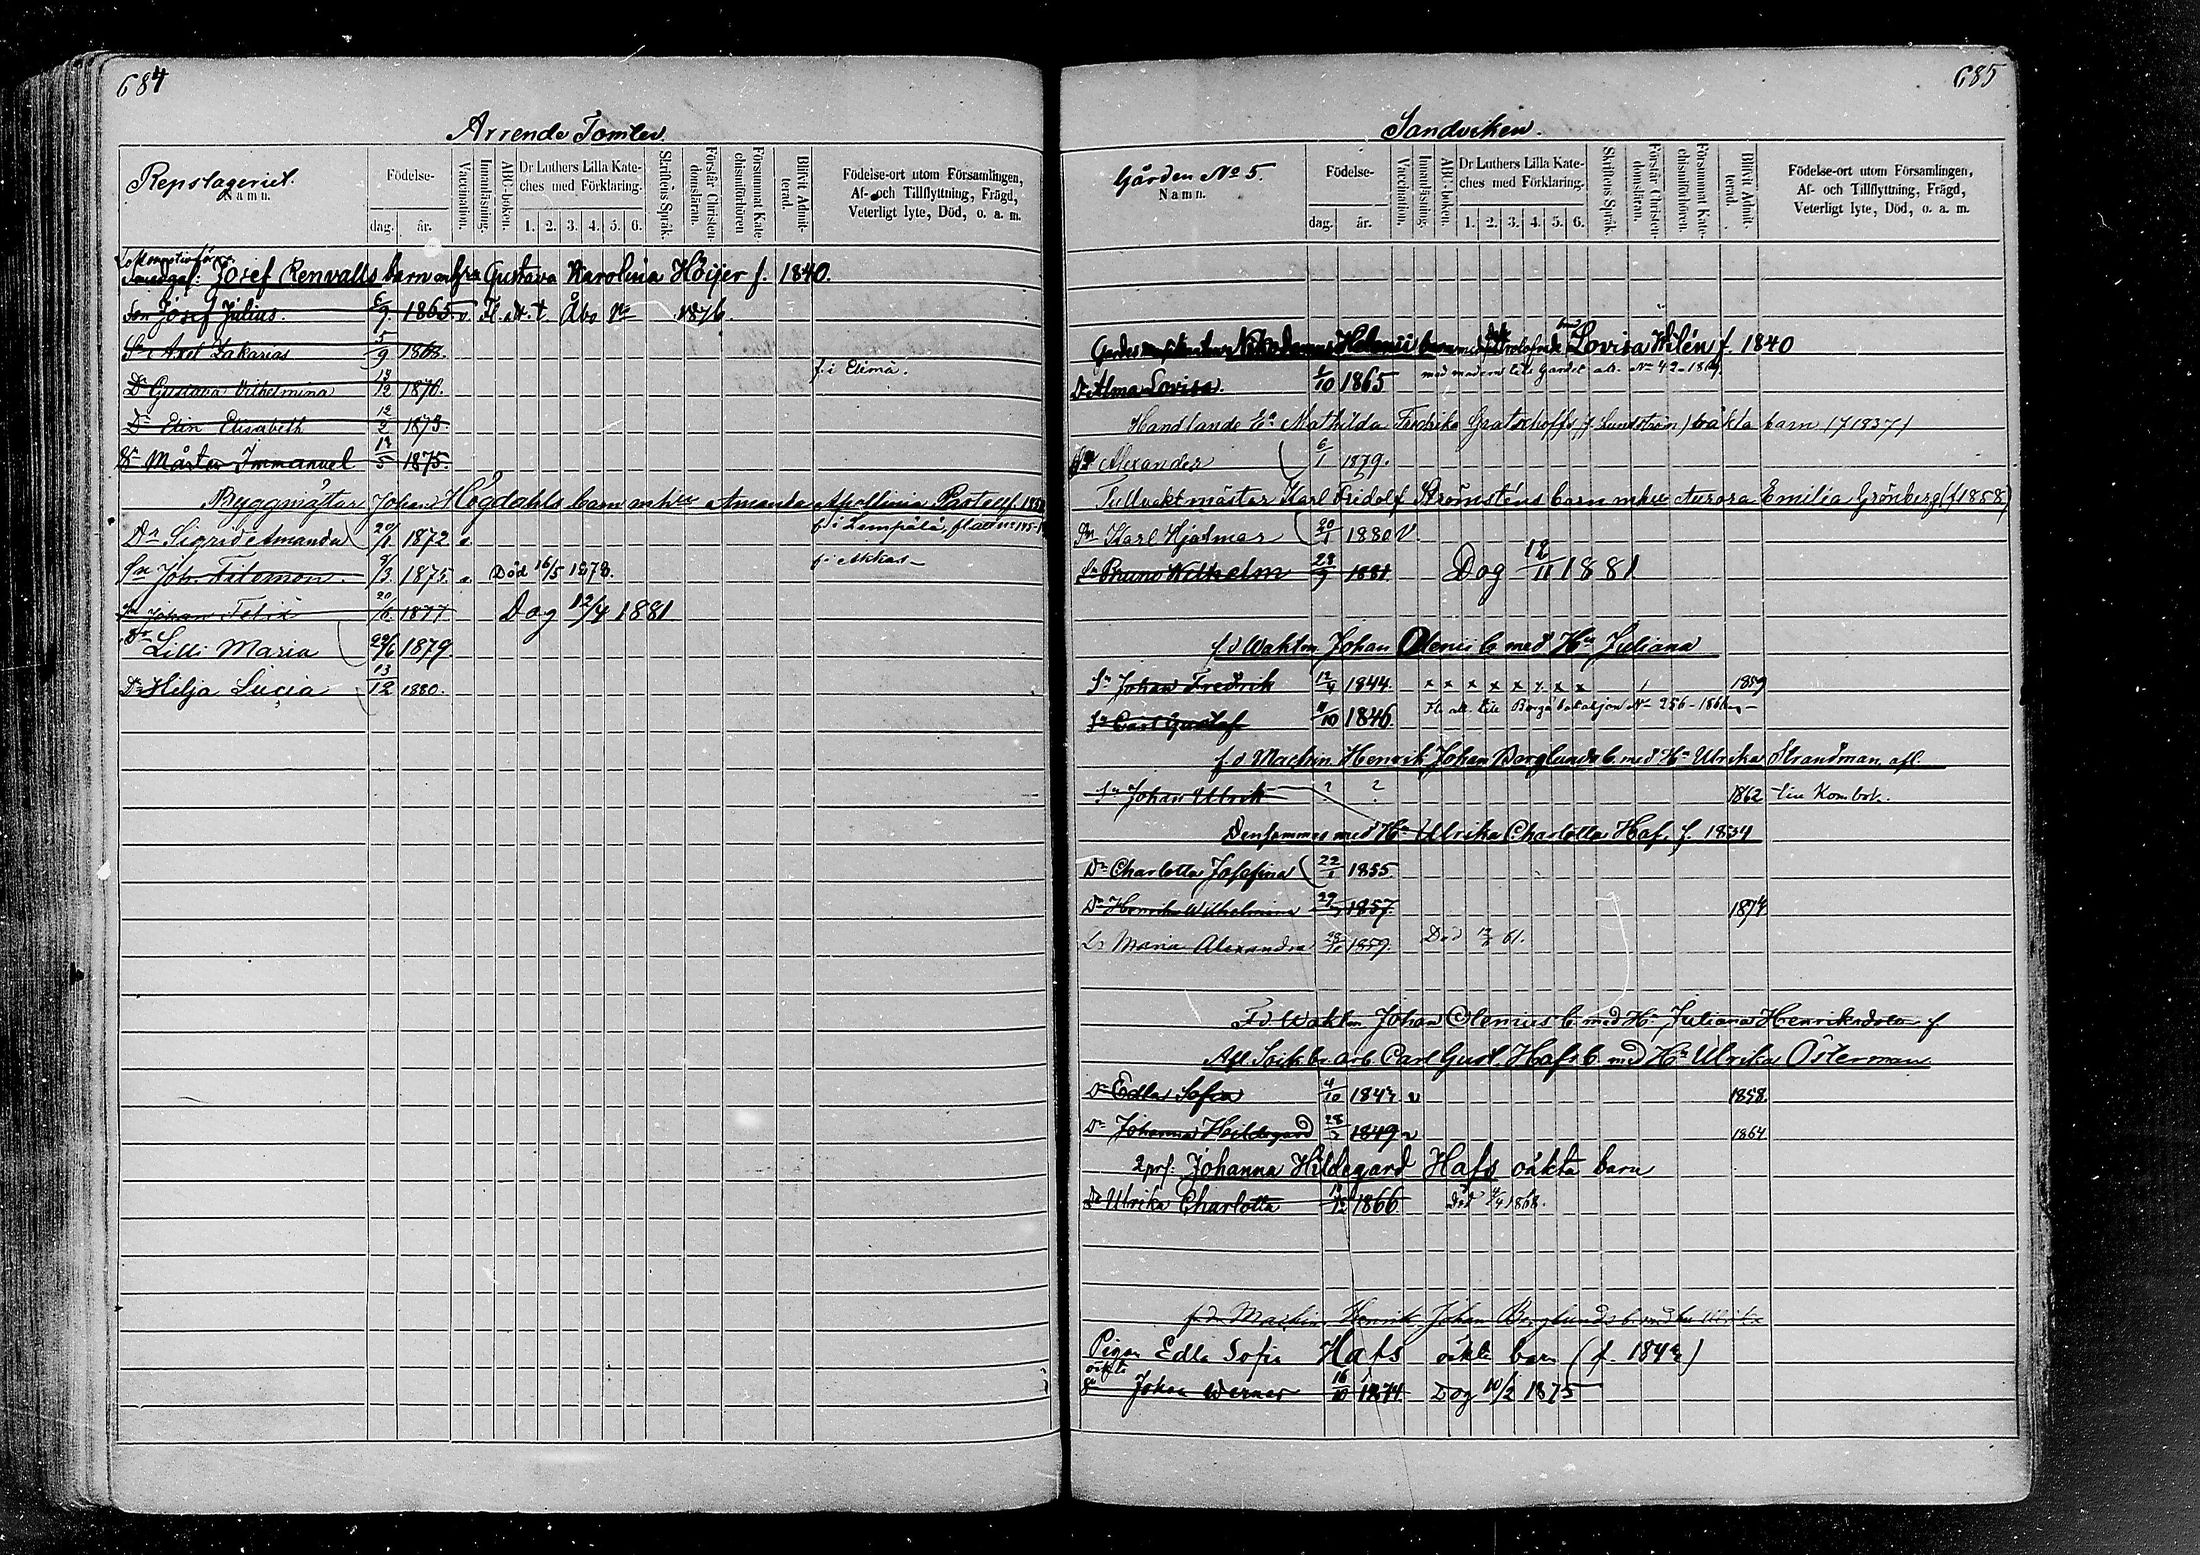 684
Arrende Tomter
Repslageriet.
Namn.
Födelse-
dag. år.
Vaccination.
Innanläsning.
ABC-boken.
Dr Luthers Lilla Kate-
ches med Förklaring.
1. 2. 3. 4. 5. 6.
Skriftens Språk.
Förstår Christen-
domsläran.
Försummat Kate-
chismiförhören
Blifvit Admit-
terad.
Födelse-ort utom Församlingen,
Af- och Tillflyttning, Frägd,
Veterligt lyte, Död, o. a. m.
Josef Renvalls barn m hu Gustava Karolina Höijer f. 1840.
Son Josef Julius. 6/9 1865 v Fl. att. t. Åbo No 1876
Sn Axel Zakarias 5/9 1868
Dr Gustava Vilhelmina 1870. f. i Elimä.
Dr Elin Elisabeth 12/2 1873
Sn Mårten Immanuel 12/5 1875.
Byggmästar Johan Högdahls barn m hu Amanda Apollinia
Dr Sigrid Amanda 1872 f. i Lempälä,
Sn Joh. Filemon. 9/3 1875 Död 16/5 1878. f. i Akkas
Sn Johan Felix 1877 Dog 12/4 1881
Dr Lilli Maria 22/6 1879.
Dr Hilja Lucia 13/12 1880.
685
Sandviken.
Gården No 5.
Namn.
Födelse-
dag. år.
Vaccination.
Innanläsning.
ABC-boken.
Dr Luthers Lilla Kate-
ches med Förklaring.
1. 2. 3. 4. 5. 6.
Skriftens Språk.
Förstår Christen-
domsläran.
Försummat Kate-
chismiförhören.
Blifvit Admit-
terad.
Födelse-ort utom Församlingen,
Af- och Tillflyttning, Frägd,
Veterligt lyte, Död, o. a. m.
Lovisa Wilén f. 1840
Dr Alma Lovisa. 1/10 1865 med modern till Gardet att. No 42-1869
Handlande Ea Mathilda Fredrika Gratschoffs (f. Lundström) oäkta barn (f 1837)
Sn Alexander 6/1 1879.
Tullvaktmästar Karl Fridolf Strömsténs barn m hu Aurora Emilia Grönberg (f 1858)
Sn Karl Hjalmar 20/1 1880 V.
Sn Bruno Wilhelm 23/9 1881 Dog 12/11 1881
f d Waktm Johan Olenii b. med Hu Juliana
Sn Johan Fredrik 12/4 1844. x x x x x x x x 1859
Sn Carl Gustaf 11/10 1846. Fl. att. till Borgå bataljon No 256-1866
f. d Machin. Henrik Johan Berglunds b. med Hu Ulrika Strandman, afl.
Sn Johan Ulrik ? ? 1862
Densammes med Hu Ulrika Charlotta Haf, f. 1834
Dr Charlotta Josefina 22/1 1855
Dr Henrika Wilhelmina 1857. 1874
Dr Maria Alexandra 1859. Död 61.
F d Waktm Johan Olenius b. med Hu Juliana Henriksdotr f
Afl. Arb. Carl Gust. Hafs b. med Hu Ulrika Österman
Dr Edla Sofia 4/10 1842 v 1858.
Dr Johanna Hildegard 28/3 1849 v 1864
Johanna Hildegard Hafs oäkta barn
Dr Ulrika Charlotta 1866 Död 1868.
f. d. Machin. Henrik Johan Berglunds b. med hu Ulrika
Pigan Edla Sofia Hafs oäkta barn (f. 1842)
oäkta
Sn Johan Werner 16/10 1874 Dog 10/2 1875